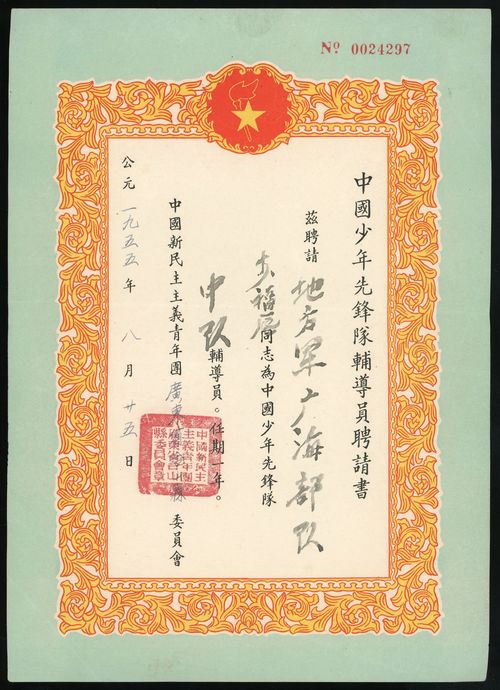 Nº 0024297
中國少年先鋒隊輔導員聘請書
茲聘請 地方軍广海部队
福 同志為中國少年先鋒隊
中队輔導員。任期一年。
中國新民主主義青年團廣東 台山縣委員會
公元一九五五年八月廿五日
中國新民主
主義青年團
台山
縣委員會章